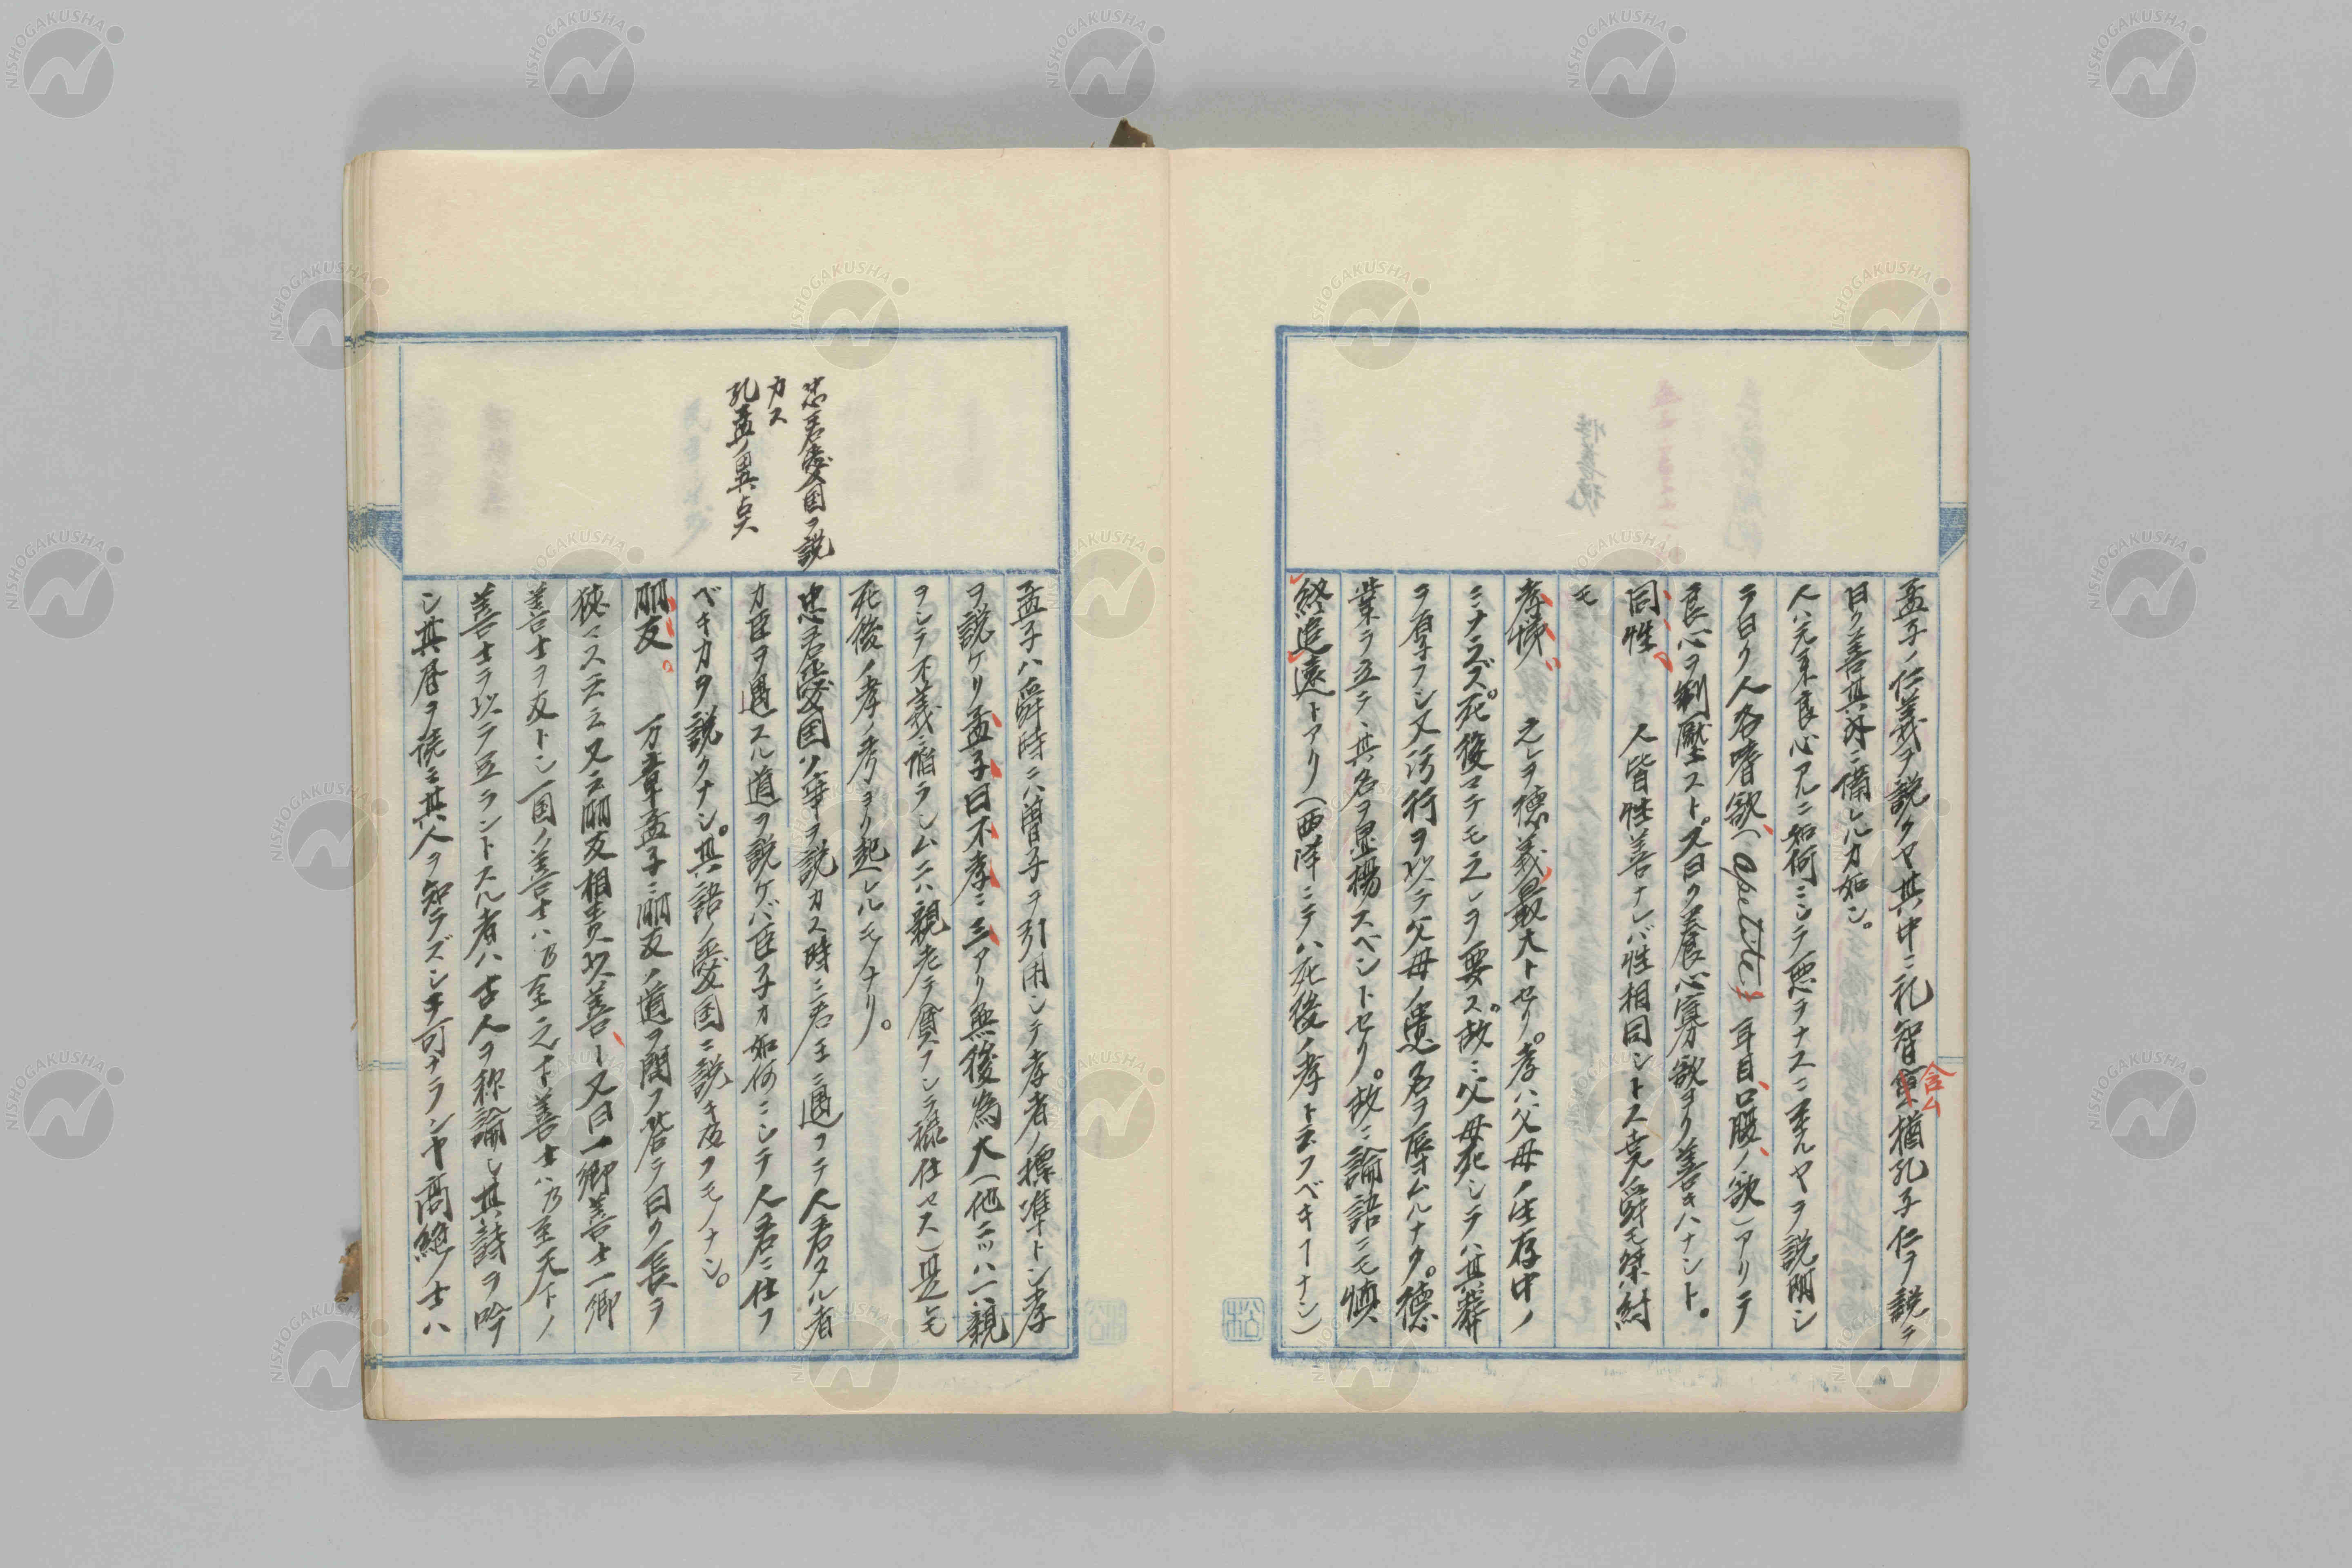 孟子ノ仁義ヲ説クヤ其中ニ礼智含ム猶孔子仁ヲ説テ
曰ク善其外ニ備レルカ如シ。
人ハ元来良心アルニ如何ニシテ悪ヲナスニ至ルヤヲ説明シ
テ曰ク人各嗜欲(apetite)耳目、口腹、ノ欲)アリテ
良心ヲ制壓スト。又曰ク養心寡欲ヨリ善キハナシト。
同性 人皆性善ナレバ性相同シトス堯舜モ桀紂
モ
孝悌 之レヲ徳義最大トセリ。孝ハ父母ノ生存中ノ
ミナラズ。死後マテモ之レヲ要ス。故ニ父母死シテハ其葬
ヲ厚フシ又汚行ヲ以テ父母ノ遺名ヲ辱ムルナク。徳
業ヲ立テ、其名ヲ显揚スベシトセリ。故ニ論語ニモ慎
終追遠トアリ(西洋ニテハ死後ノ孝ト云フベキーナシ)
忠君愛国ヲ説
カス
孔孟ノ異点
孟子ハ舜時ニハ曽子ヲ引用シテ孝者ノ標準トシ孝
ヲ説ケリ孟子曰不孝ニ三アリ無後為大(他ニツハ一ハ親
ヲシテ不義ニ陥ラシムニハ親老テ貧フシテ禄仕セス)是レモ
死後ノ孝ノ考ヨリ起レルモノナリ。
忠君愛国ノ事ヲ説カス時ニ君主ニ遇フテ人君タル者
カ臣ヲ遇スル道ヲ説ケバ臣子カ如何ニシテ人君ニ仕フ
ベキカヲ説クナシ。其語ノ愛国ニ説キ及フモノナシ。
朋友。 万章孟子ニ朋友ノ道ヲ問フ答テ曰ク長ヲ
挟ミス云云又云朋友相責以善、ト又曰一郷善士一郷
善士ヲ友トシ一国ノ善士ハ乃至之十善士ハ乃至天下ノ
善士ヲ以テ足ラントスル者ハ古人ヲ称論シ其詩ヲ吟
シ其書ヲ読ミ其人ヲ知ラズシテ可ナランヤ高絶ノ士ハ